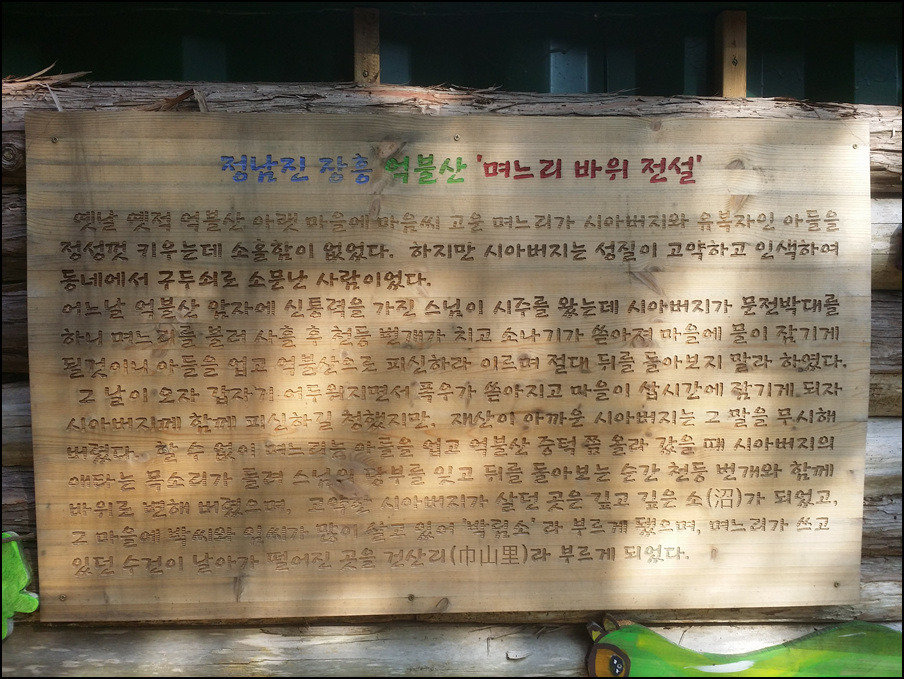 정남진 장흥 억불산 '며느리 바위 전설'
옛날 옛적 억불산 아랫 마을에 마음씨 고운 며느리가 시아버지와 유복자인 아들을
정성껏 키우는데 소홀함이 없었다. 하지만 시아버지는 성질이 고약하고 인색하여
동네에서 구두쇠로 소문난 사람이었다.
어느날 억불산 암자에 신통력을 가진 스님이 시주를 왔는데 시아버지가 문전박대를
하니 며느리를 불러 사흘 후 천둥 번개가 치고 소나기가 쏟아져 마을에 물이 잠기게
될것이니 아들을 업고 억불산으로 피신하라 이르며 절대 뒤를 돌아보지 말라 하였다.
그 날이 오자 갑자기 어두워지면서 폭우가 쏟아지고 마을이 삽시간에 잠기게 되자
시아버지께 함께 피신하길 청했지만, 재산이 아까운 시아버지는 그 말을 무시해
버렸다. 할 수 없이 며느리는 아들을 업고 억불산 중턱 쯤 올라 갔을 때 시아버지의
애타는 목소리가 들려 스님의 당부를 잊고 뒤를 돌아보는 순간 천둥 번개와 함께
바위로 변해 버렸으며, 고약한 시아버지가 살던 곳은 깊고 깊은 소(沼)가 되었고,
그 마을에 박씨와 임씨가 많이 살고 있어 '박림소' 라 부르게 됐으며, 며느리가 쓰고
있던 수건이 날아가 떨어진 곳을 건산리(巾山里)라 부르게 되었다.